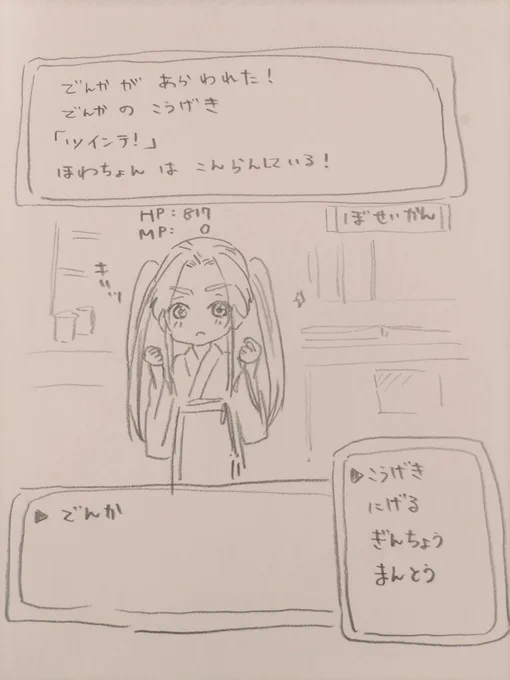 でんか が あらわれた！
でんか の こうげき
「ツインテ！」
ほわちょん は こんらんしている！
HP: 817
MP: 0
ぼせいかん
キッ
でんか
こうげき
にげる
ぎんちょう
まんとう